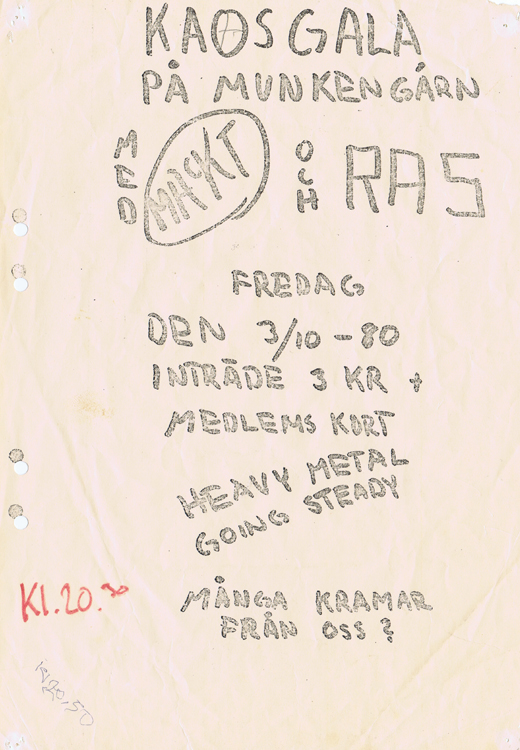 KAOSGALA
PÅ MUNKENGÅRN
MED MACKT OCH RAS
FREDAG
DEN 3/10-80
INTRÄDE 3 KR +
MEDLEMS KORT
HEAVY METAL
GOING STEADY
MÅNGA KRAMAR
FRÅN OSS?
Kl.20.30
Kl 20,50